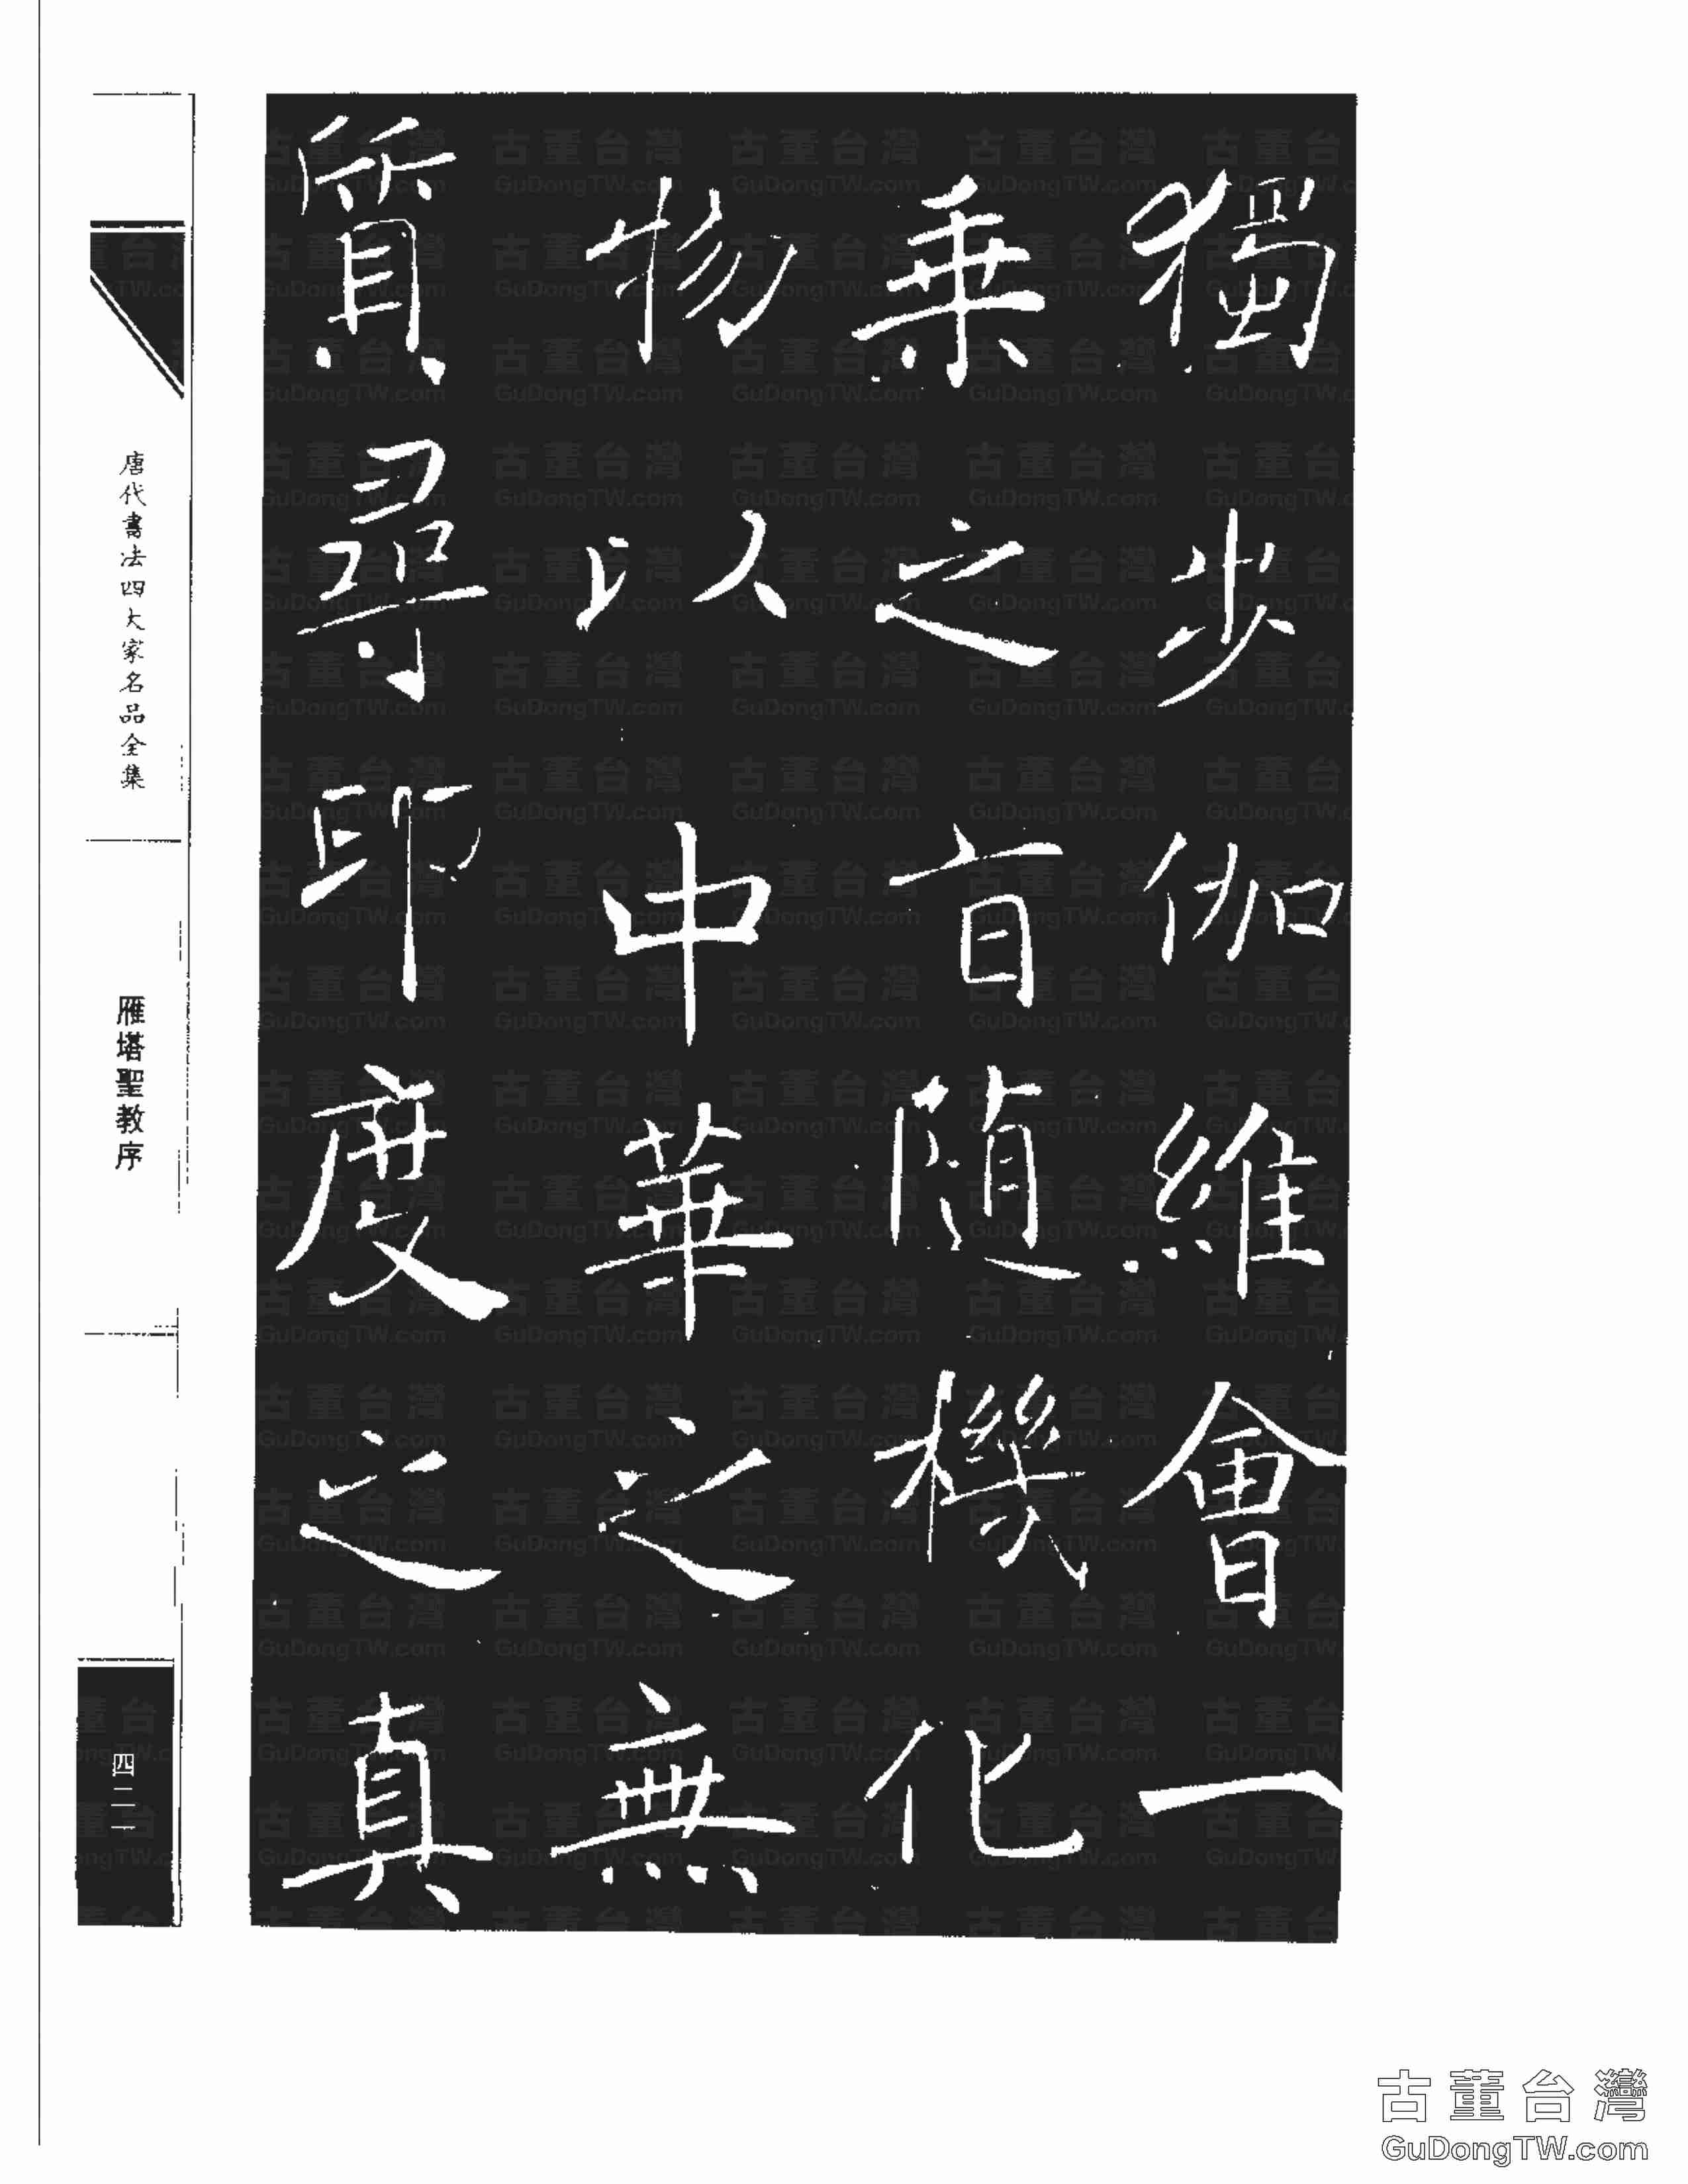 獨步伽維會一
乘之旨随機化
物以中華之無
質尋印度之真
唐代書法四大家名品全集
雁塔聖教序
四二一
古董台灣
GuDongTW.com